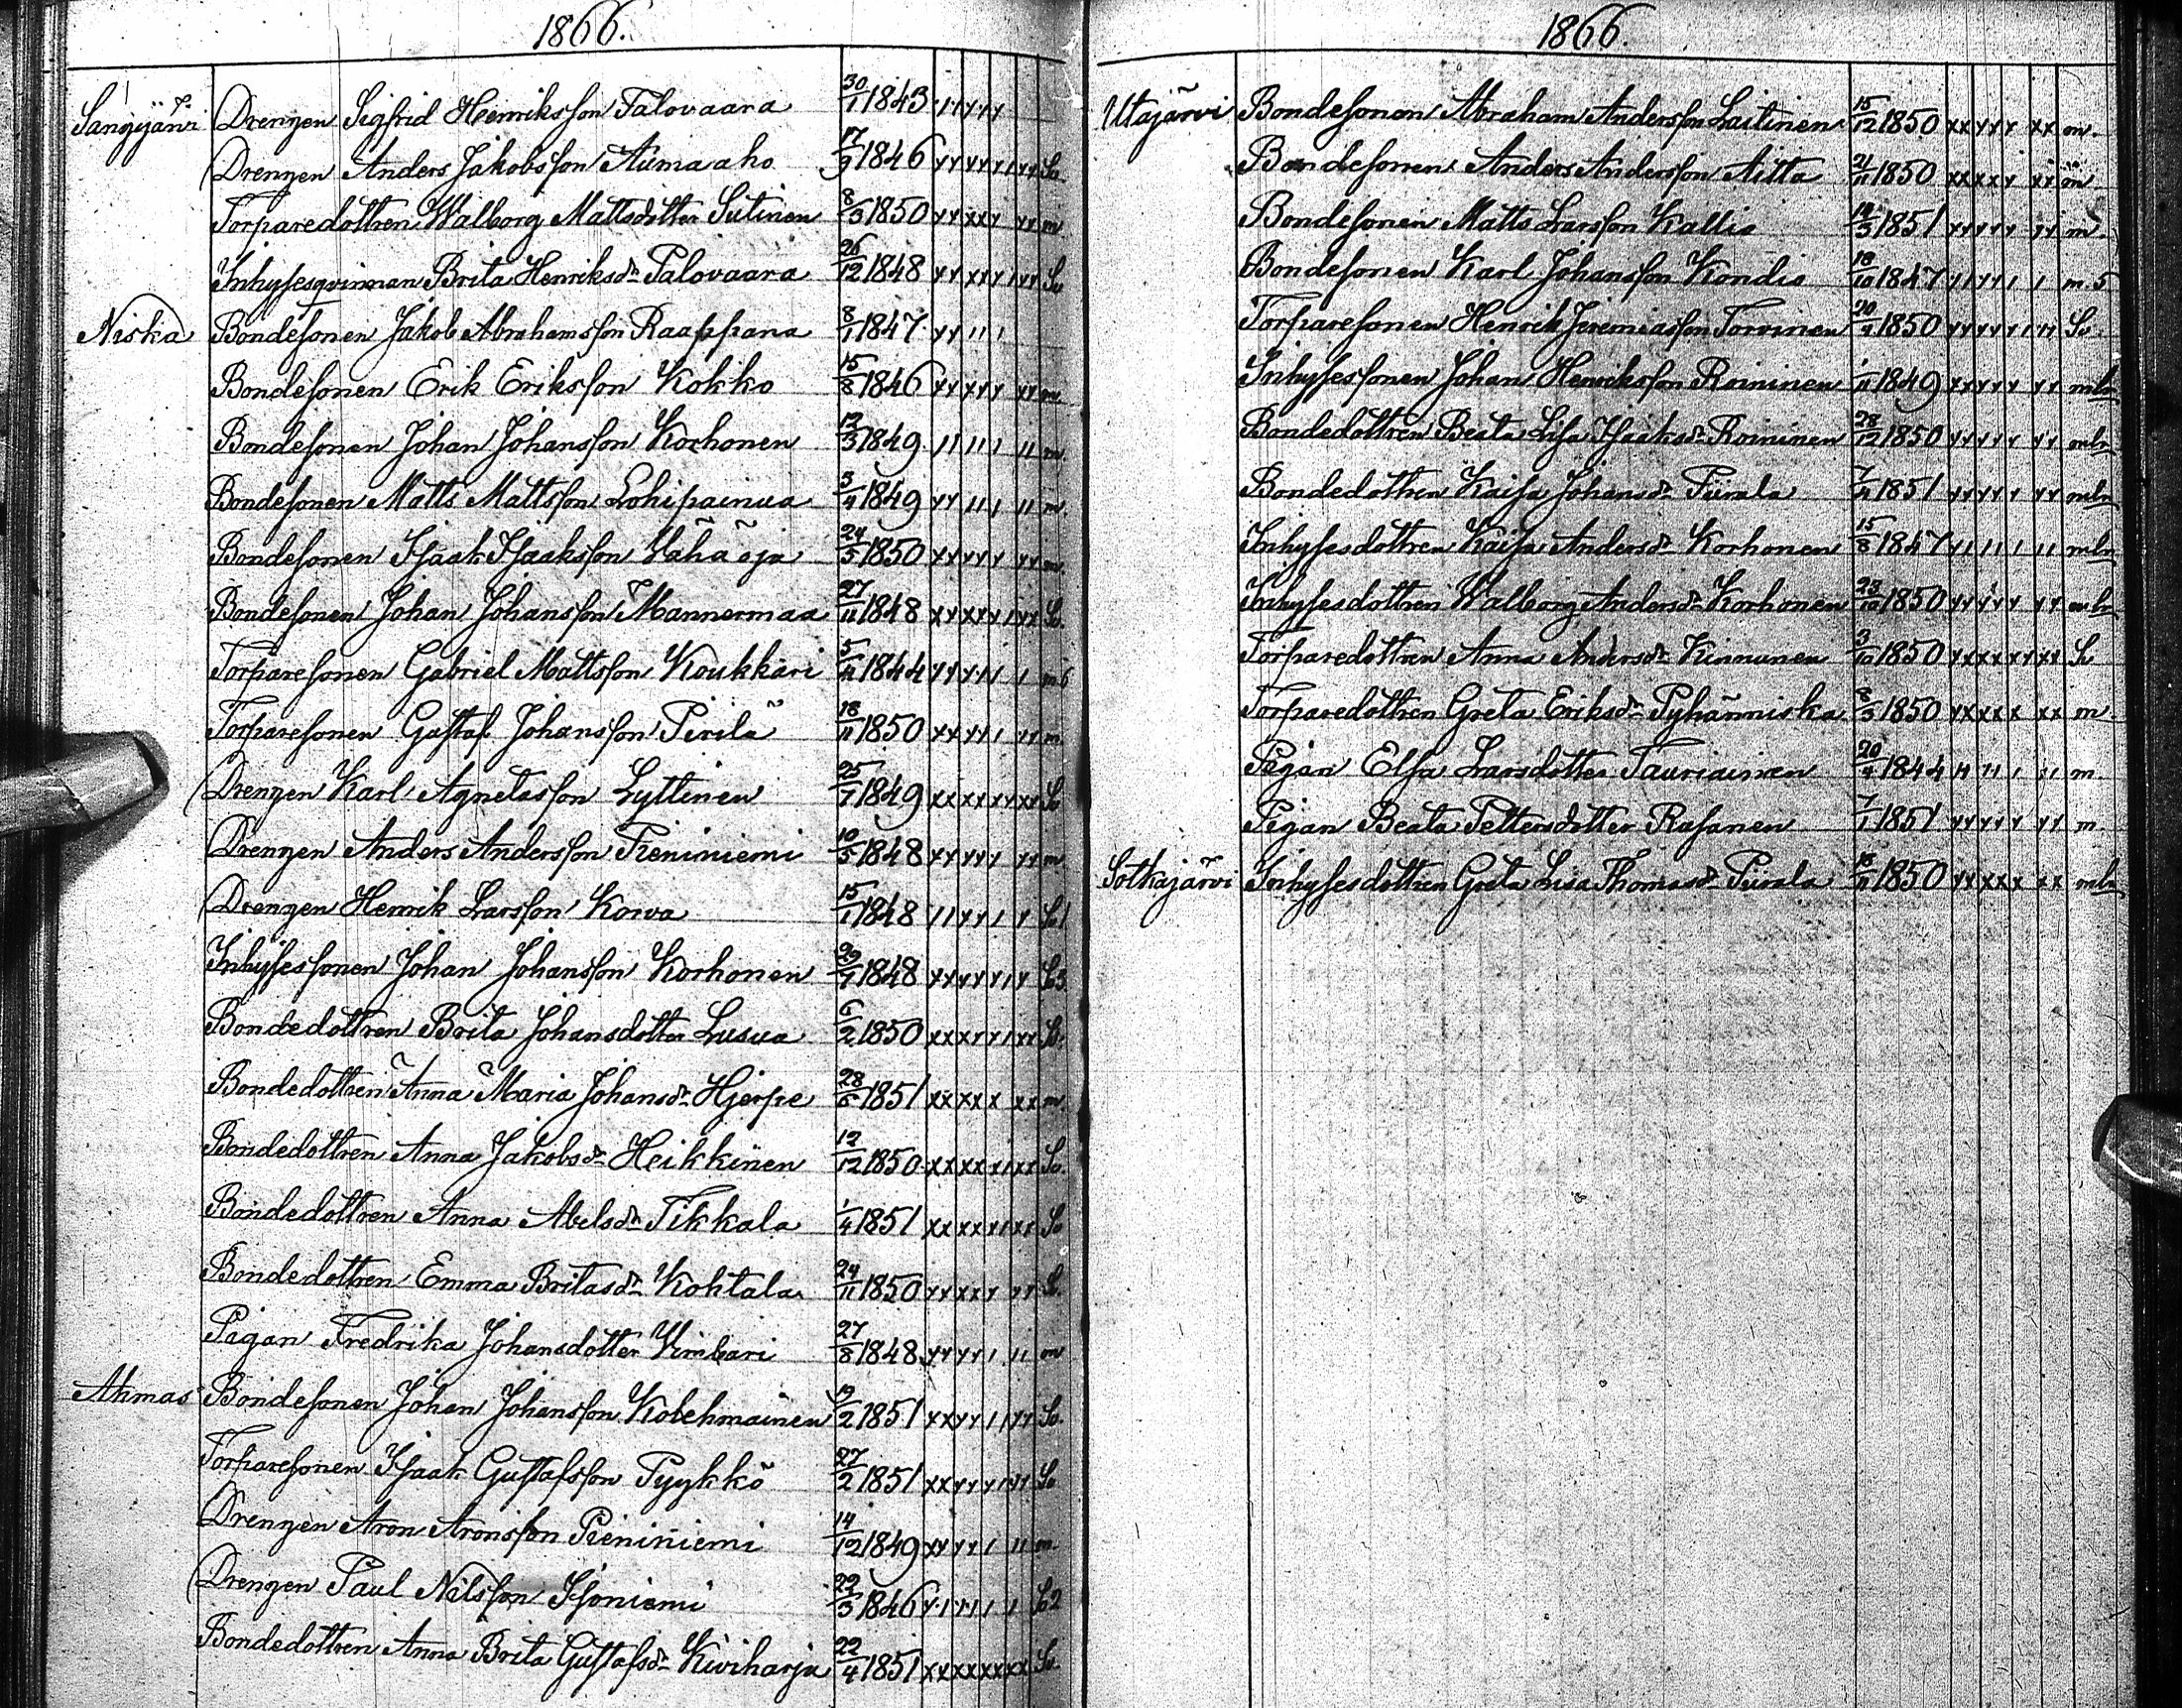 1866.
Sangijärvi Drengen Sigfrid Henriksson Palovaara 30/1 1843
Drengen Anders Jakobsson Aumaaho 17/9 1846 So
Torparedottren Walborg Mattsdotter Sutinen 8/3 1850 m
Inhysesqvinnan Brita Henriksdr Palovaara 26/12 1848 So
Niska Bondesonen Jakob Abrahamsson Raappana 8/1 1847
Bondesonen Erik Eriksson Kokko 15/8 1846 m
Bondesonen Johan Johansson Korhonen 12/3 1849 m.
Bondesonen Matts Mattsson Lohipainua 3/4 1849 m.
Bondesonen Isaak Isaaksson Vähäoja 24/5 1850 m.
Bondesonen Johan Johansson Mannermaa 27/11 1848 So.
Torparesonen Gabriel Mattsson Koukkari 5/4 1844 m 6
Torparesonen Gustaf Johansson Pirilä 18/11 1850 m.
Drengen Karl Agnetasson Lyttinen 25/7 1849 So
Drengen Anders Andersson Pieniniemi 10/5 1848 m
Drengen Henrik Larsson Kowa 15/1 1848 So 1
Inhysessonen Johan Johansson Korhonen 29/7 1848 So 3
Bondedottren Brita Johansdotter Lusua 6/2 1850 So.
Bondedottren Anna Maria Johansdr Hjerpe 28/6 1851 m.
Bondedottren Anna Jakobsdr Heikkinen 12/12 1850 So.
Bondedottren Anna Abelsdr Tikkala 1/4 1851 So
Bondedottren Emma Britasdr Kohtala 24/11 1850 So.
Pigan Fredrika Johansdotter Vimbari 27/8 1848 m
Ahmas Bondesonen Johan Johansson Kolehmainen 19/2 1851 So.
Torparesonen Isaak Gustafsson Pyykkö 27/2 1851 So
Drengen Aron Aronsson Pieniniemi 14/12 1849 m.
Drengen Paul Nilsson Isoniemi 22/3 1846 So 2
Bondedottren Anna Brita Gustafsdr Kiviharju 22/4 1851 So.
1866.
Utajärvi Bondesonen Abraham Andersson Laitinen 15/12 1850 m.
Bondesonen Anders Andersson Aitta 21/11 1850 m
Bondesonen Matts Larsson Kallio 14/3 1851 m.
Bondesonen Karl Johansson Kondio 18/10 1847 m. 5
Torparesonen Henrik Jeremiasson Torvinen 20/9 1850 So
Inhysessonen Johan Henriksson Roininen 1/11 1849 mln
Bondedottren Beata Lisa Isaaksdr Roininen 28/12 1850 mln
Bondedottren Kaisa Johansdr Piirala 7/4 1851 mln
Inhysesdottren Kaisa Andersdr Korhonen 15/8 1847 mln
Inhysesdottren Walborg Andersdr Korhonen 23/10 1850 mln
Torparedottren Anna Andersdr Kinnunen 3/10 1850 So
Torparedottren Greta Eriksdr Pyhänniska 8/3 1850 m.
Pigan Elsa Larsdotter Tauriainen 20/9 1844 m.
Pigan Beata Pettersdotter Rasanen 7/1 1851 m.
Sotkajärvi Inhysesdottren Greta Lisa Thomasdr Piirala 18/11 1850 mln